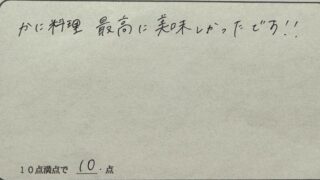 かに料理 最高に美味しかったです!!
10点満点で 10.点